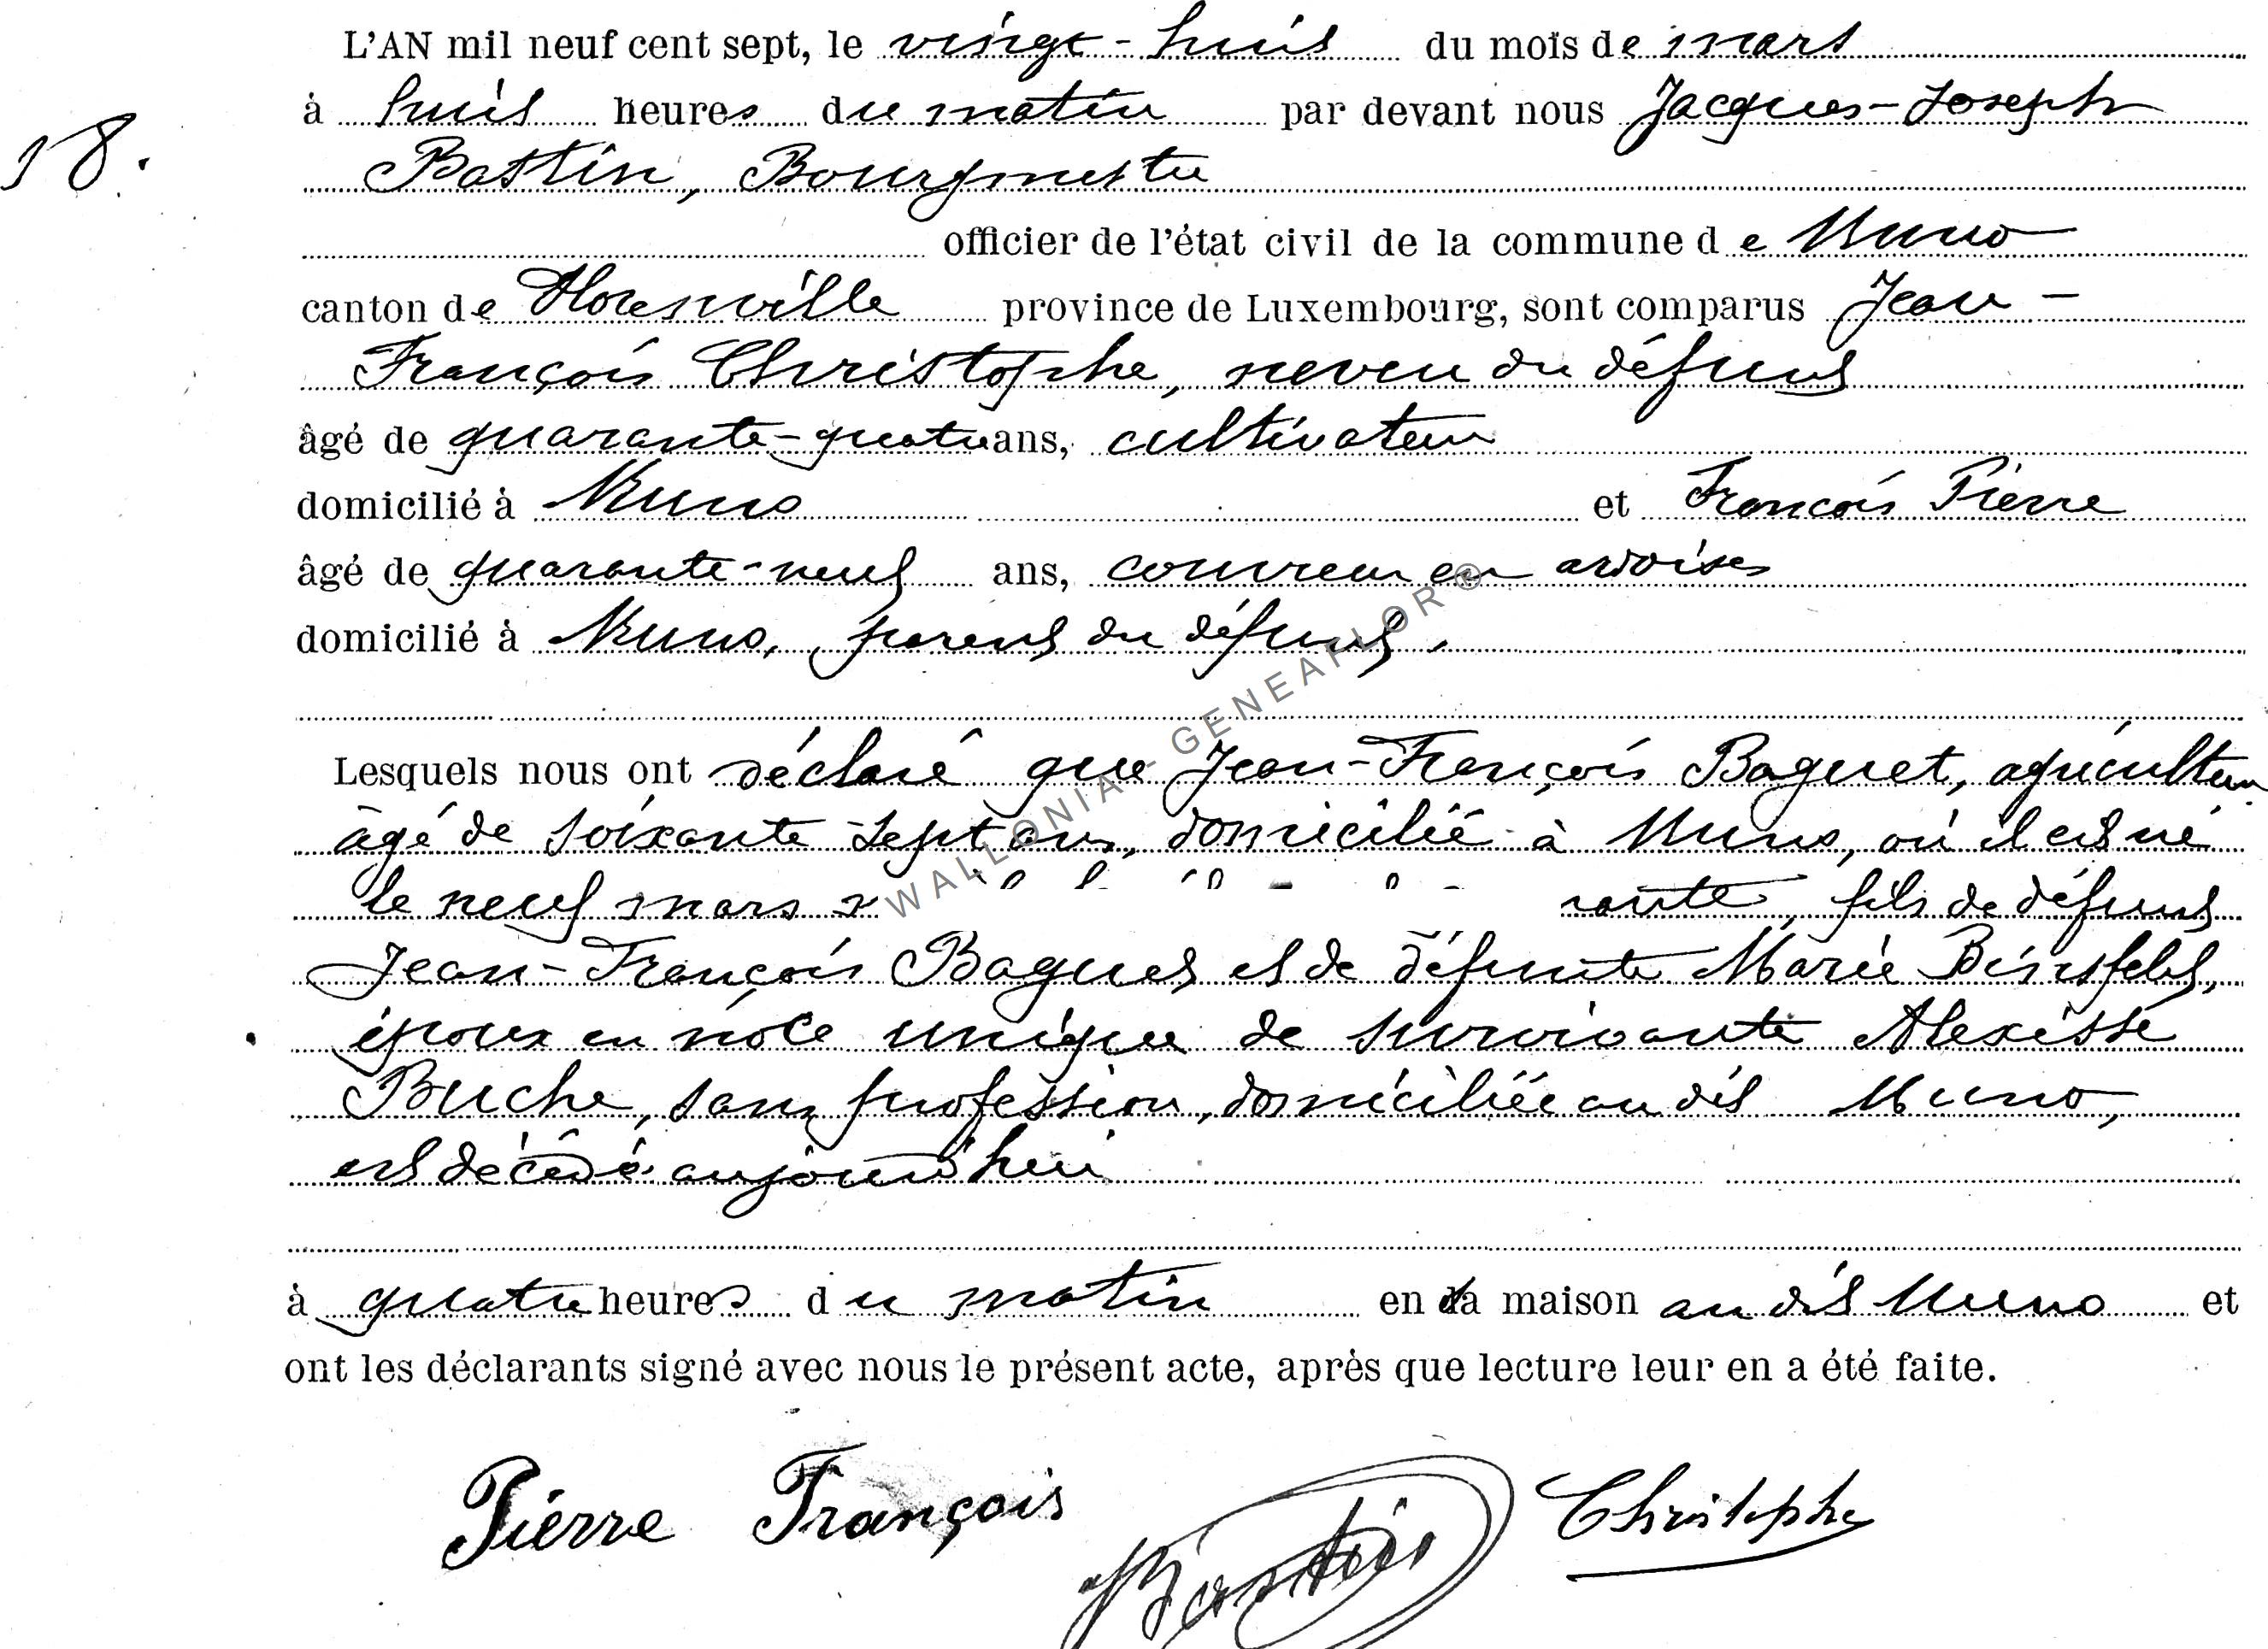 L'AN mil neuf cent sept, le vingt-huit du mois de mars
à huit heures du matin par devant nous Jacques-Joseph
18.
Bastin, Bourgmestre
officier de l'état civil de la commune de Muno
canton de Florenville province de Luxembourg, sont comparus Jean-
François Christophe, neveu du défunt
âgé de quarante-quatre ans, cultivateur
domicilié à Muno et François Pierre
âgé de quarante-neuf ans, couvreur en ardoises
domicilié à Muno, parent du défunt.
WALLONIA - GENEAFLOR®
Lesquels nous ont déclaré que Jean-François Baguet, agriculteur
âgé de soixante-sept ans, domicilié à Muno, où il est né
le neuf mars rante, fils de défunt
Jean-François Baguet et de défunte Marie Binsfeld,
époux en noce unique de survivante Alexisse
Buche, sans profession, domiciliée au dit Muno,
est décédé aujourd'hui
à quatre heures du matin en sa maison au dit Muno et
ont les déclarants signé avec nous le présent acte, après que lecture leur en a été faite.
Pierre François Bastin Christophe